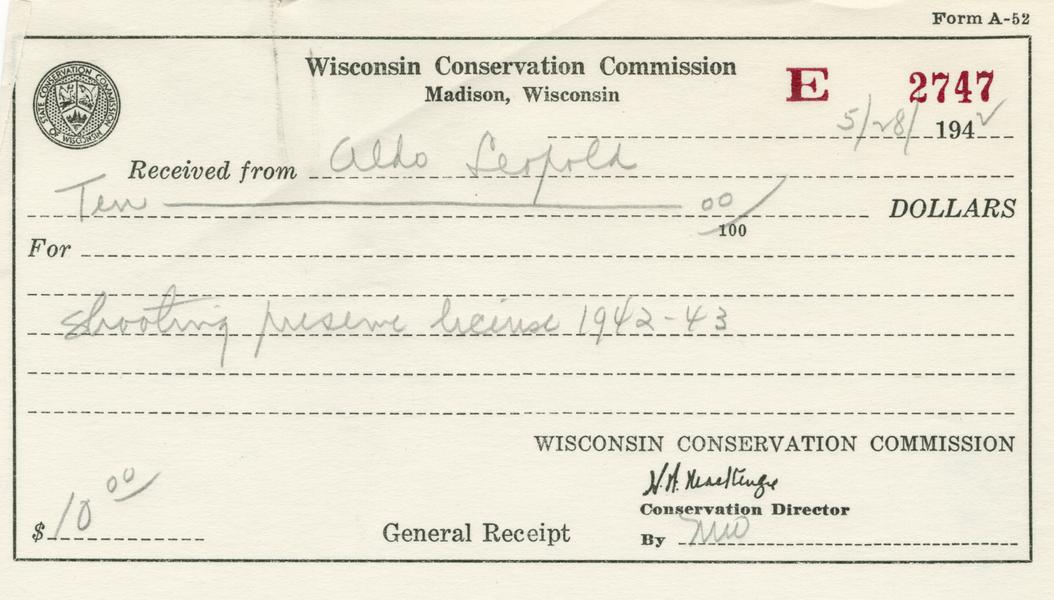 Form A-52
Wisconsin Conservation Commission
Madison, Wisconsin
E 2747
5/28/ 1942
STATE CONSERVATION COMMISSION OF WISCONSIN
Received from Aldo Leopold
Ten 00/100 DOLLARS
For
Shooting preserve license 1942-43
WISCONSIN CONSERVATION COMMISSION
H.W. MacKenzie
Conservation Director
$ 10 00 General Receipt By